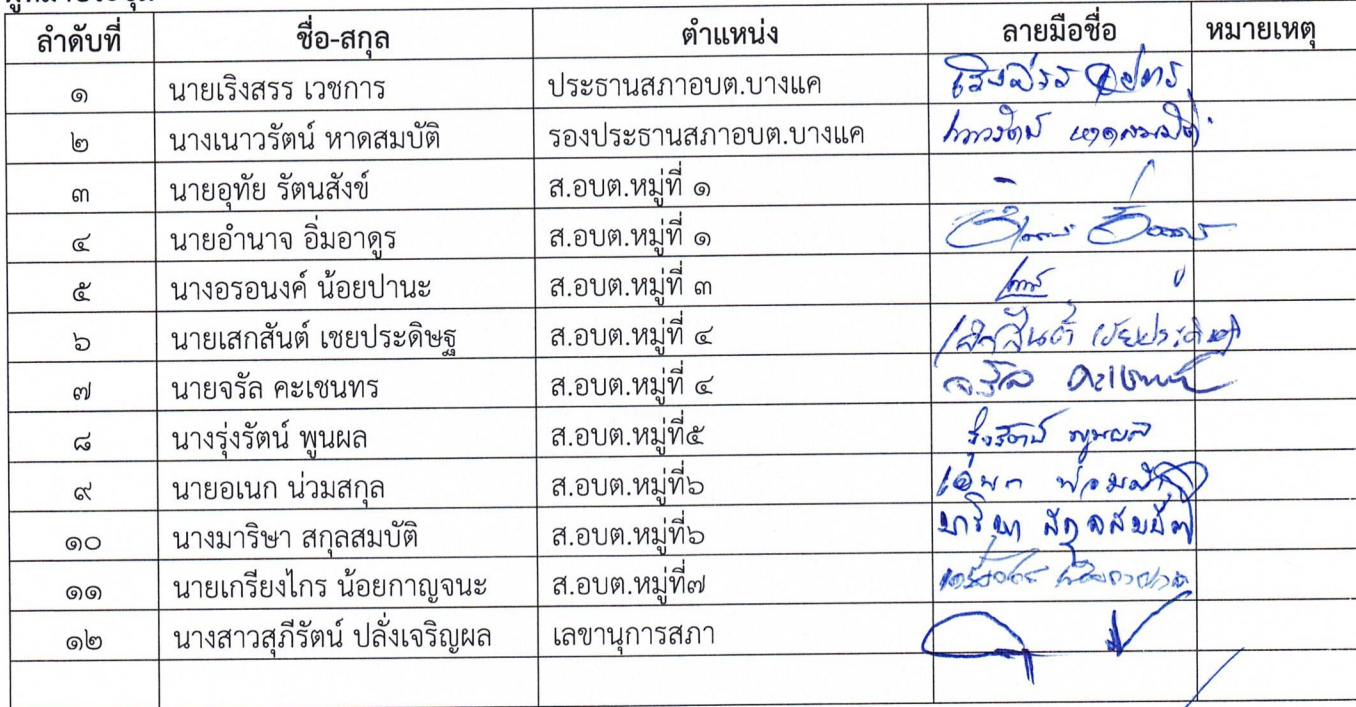 ลำดับที่ ชื่อ-สกุล ตำแหน่ง ลายมือชื่อ หมายเหตุ
๑ นายเริงสรร เวชการ ประธานสภาอบต.บางแค
๒ นางเนาวรัตน์ หาดสมบัติ รองประธานสภาอบต.บางแค เนาวรัตน์ หาดสมบัติ
๓ นายอุทัย รัตนสังข์ ส.อบต.หมู่ที่ ๑
๔ นายอำนาจ อิ่มอาดูร ส.อบต.หมู่ที่ ๑
๕ นางอรอนงค์ น้อยปานะ ส.อบต.หมู่ที่ ๓
๖ นายเสกสันต์ เชยประดิษฐ ส.อบต.หมู่ที่ ๔ เสกสันต์ เชยประดิษฐ
๗ นายจรัล คะเชนทร ส.อบต.หมู่ที่ ๔ จรัล คะเชนทร
๘ นางรุ่งรัตน์ พูนผล ส.อบต.หมู่ที่๕ รุ่งรัตน์ พูนผล
๙ นายอเนก น่วมสกุล ส.อบต.หมู่ที่๖
๑๐ นางมาริษา สกุลสมบัติ ส.อบต.หมู่ที่๖ มาริษา สกุลสมบัติ
๑๑ นายเกรียงไกร น้อยกาญจนะ ส.อบต.หมู่ที่๗
๑๒ นางสาวสุภีรัตน์ ปลั่งเจริญผล เลขานุการสภา